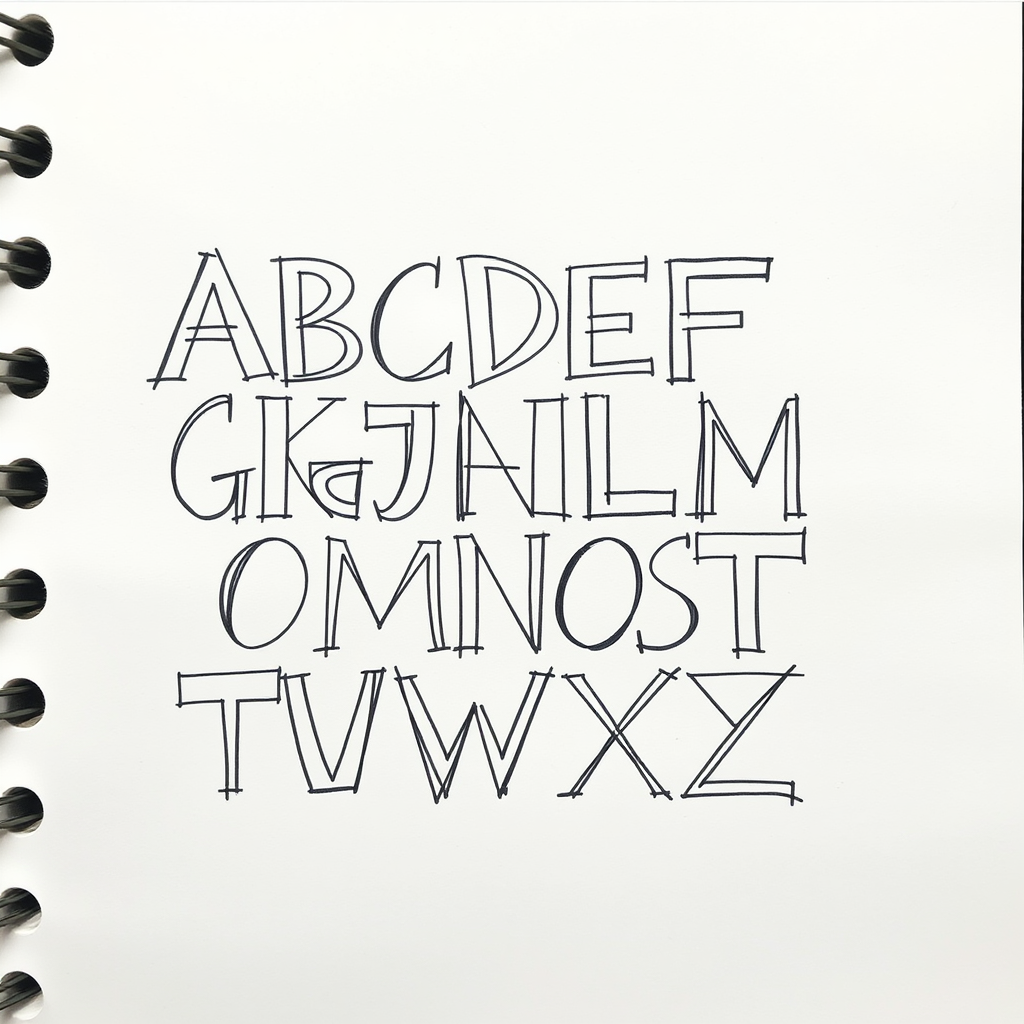 ABCDEF
GKJAILM
OMNOST
TUWXZ